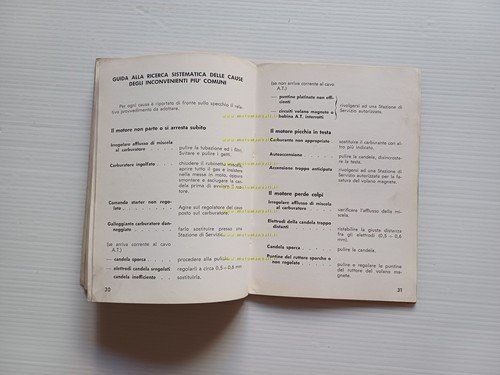 GUIDA ALLA RICERCA SISTEMATICA DELLE CAUSE
DEGLI INCONVENIENTI PIU' COMUNI
Per ogni causa è riportato di fronte sullo specchio il relativo
provvedimento da adottare.
Il motore non parte o si arresta subito
Irregolare afflusso di miscela
al carburatore
pulire la tubazione ed i filtri.
Svitare e pulire i getti.
Carburatore ingolfato
chiudere il rubinetto miscela,
aprire tutto il gas e insistere
nella messa in moto, oppure
smontare e asciugare la candela
prima di avviare il motore.
Comando starter non regolato
Agire sul regolatore del cavo
posto sul carburatore.
Galleggiante carburatore danneggiato
farlo sostituire presso una
Stazione di Servizio
(se non arriva corrente al cavo
A.T.)
— candela sporca
procedere alla pulizia
— elettrodi candela sregolati
regolarli a circa 0,5 ÷ 0,6 mm
— candela inefficiente
sostituirla.
30
(se non arriva corrente al cavo
A.T.)
— puntine platinate non efficienti
— circuiti volano magnete o
bobina A.T. interrotti
rivolgersi ad una Stazione di
Servizio autorizzata.
Il motore picchia in testa
Carburante non appropriato
sostituire il carburante con altro
più indicato.
Autoaccensione
pulire la candela, disincrostare
la testa.
Accensione troppo anticipata
rivolgersi ad una Stazione di
Servizio autorizzata per la fasatura
del volano magnete.
Il motore perde colpi
Irregolare afflusso di miscela
al carburatore
verificare l'afflusso della miscela.
Elettrodi della candela troppo
distanti
ristabilire la giusta distanza
fra gli elettrodi (0,5 ÷ 0,6
mm).
Candela sporca
pulire la candela.
Puntine del ruttore sporche o
non regolate
pulire o regolare le puntine
del ruttore del volano magnete.
31
www.motomanuali.it
www.motomanuali.it
www.motomanuali.it
www.motomanuali.it
www.motomanuali.it